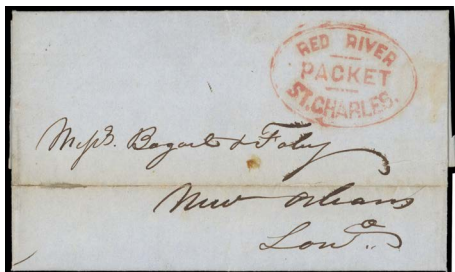 RED RIVER
PACKET
ST. CHARLES.
Messrs. Bogart & Foley
New Orleans
Lou^a.